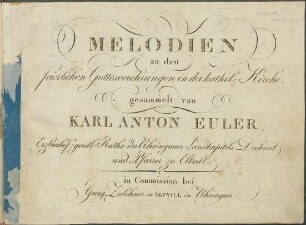 MELODIEN
zu den
feierlichen Gottesverehrungen in der kathol. Kirche
gesammelt von
KARL ANTON EULER,
Erzbischof. geistl. Rathe des Rheingauer Landkapitels Dechant
und Pfarrer zu Eltvill.
in Commission bei
Georg Zulehner in ELTVILL im Rheingau.